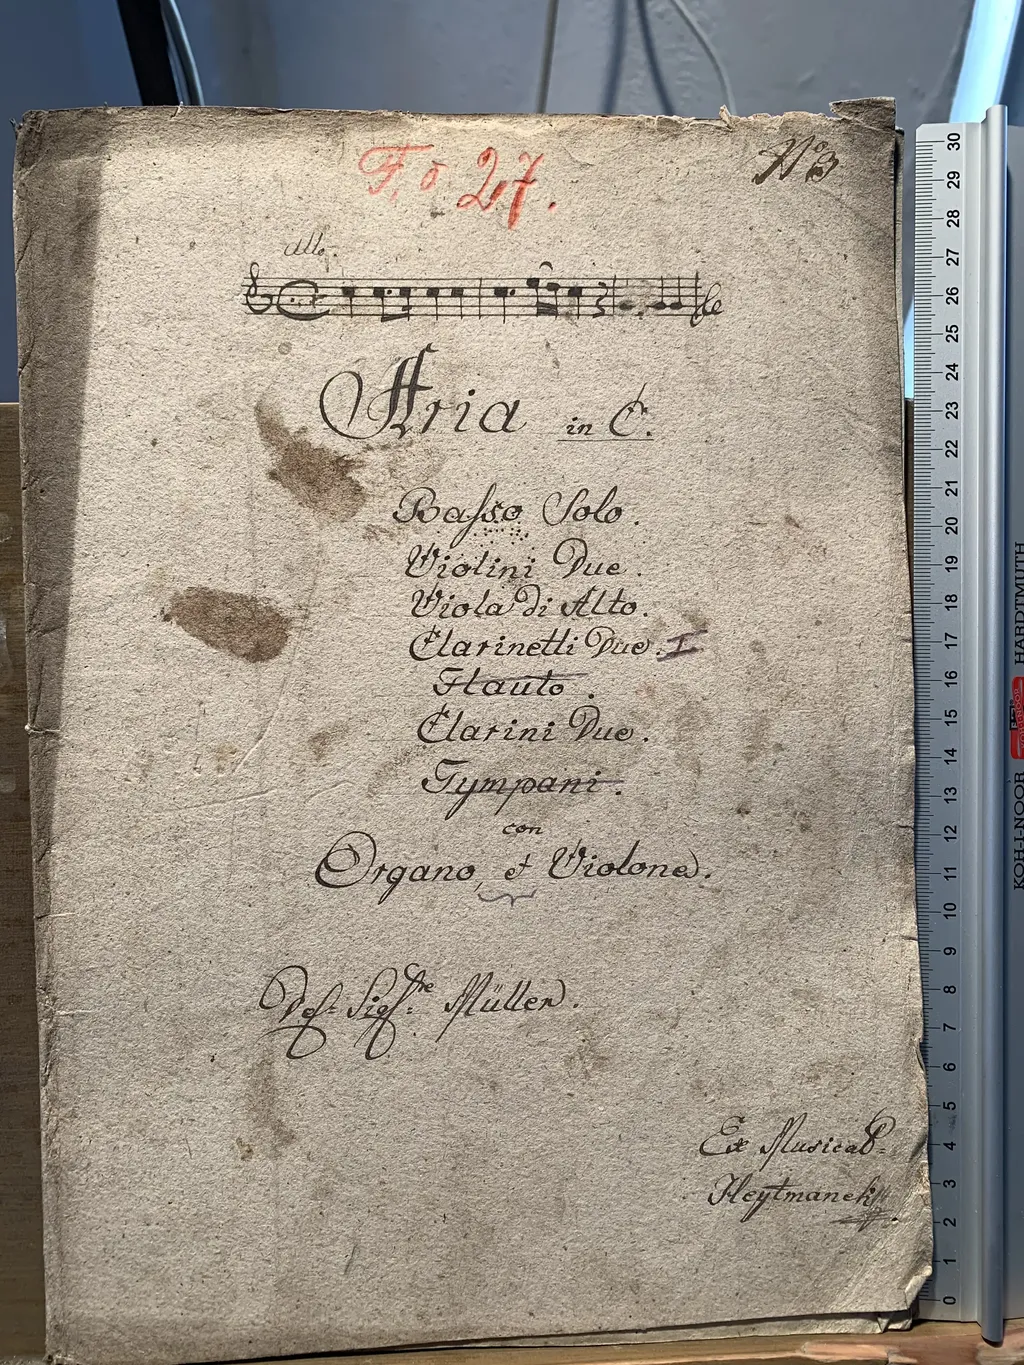 F. ō 27.
No 3
Allo.
Aria in C.
Baſso Solo.
Violini Due.
Viola di Alto.
Clarinetti Due. I
Flauto.
Clarini Due.
Tympani.
con
Organo, et Violone.
Del Sigre Müller.
Ex Musical
Heytmanek
30
29
28
27
26
25
24
23
22
21
20
19
18
17
16
15
14
13
12
11
10
9
8
7
6
5
4
3
2
1
0
KOH-I-NOOR HARDTMUTH